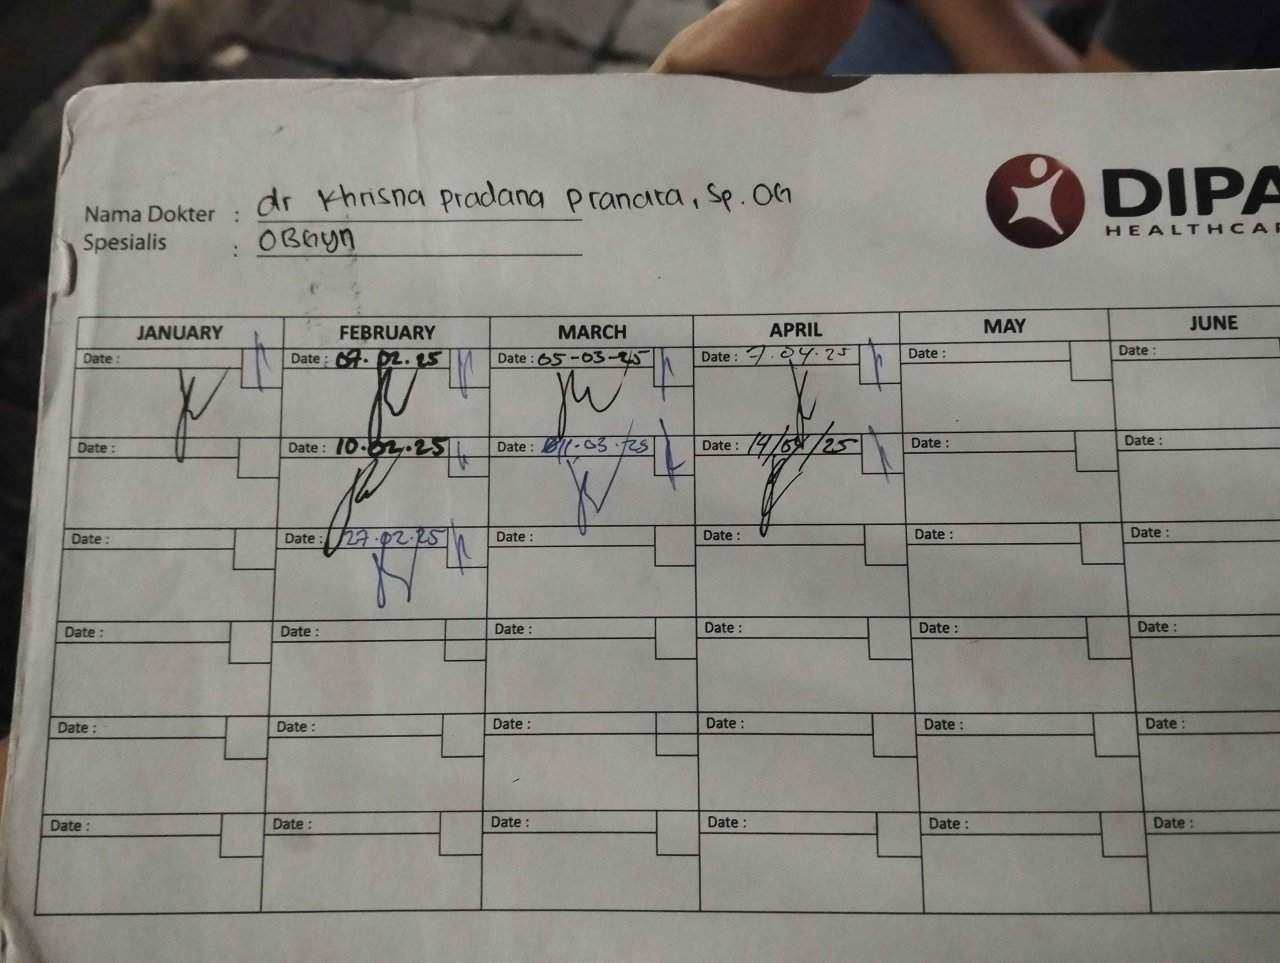 Nama Dokter : dr Khrisna Pradana Pranara, Sp. OG
Spesialis : OBGyn
DIPA
HEALTHCAR
JANUARY FEBRUARY MARCH APRIL MAY JUNE
Date : Date : 07.02.25 Date : 05-03-25 Date : 7.04.25 Date : Date :
Date : Date : 10.02.25 Date : 11.03.25 Date : 14/04/25 Date : Date :
Date : Date : 27.02.25 Date : Date : Date : Date :
Date : Date : Date : Date : Date : Date :
Date : Date : Date : Date : Date : Date :
Date : Date : Date : Date : Date : Date :